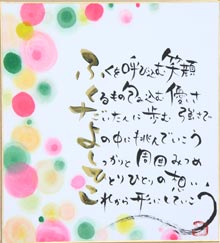 ふくを呼び込む笑顔
くるもの包み込む優しさ
だいたんに歩む 強さで
よの中に挑んでいこう
しっかりと周囲みつめ
ひとりひとりの想い
これから形にしていこう